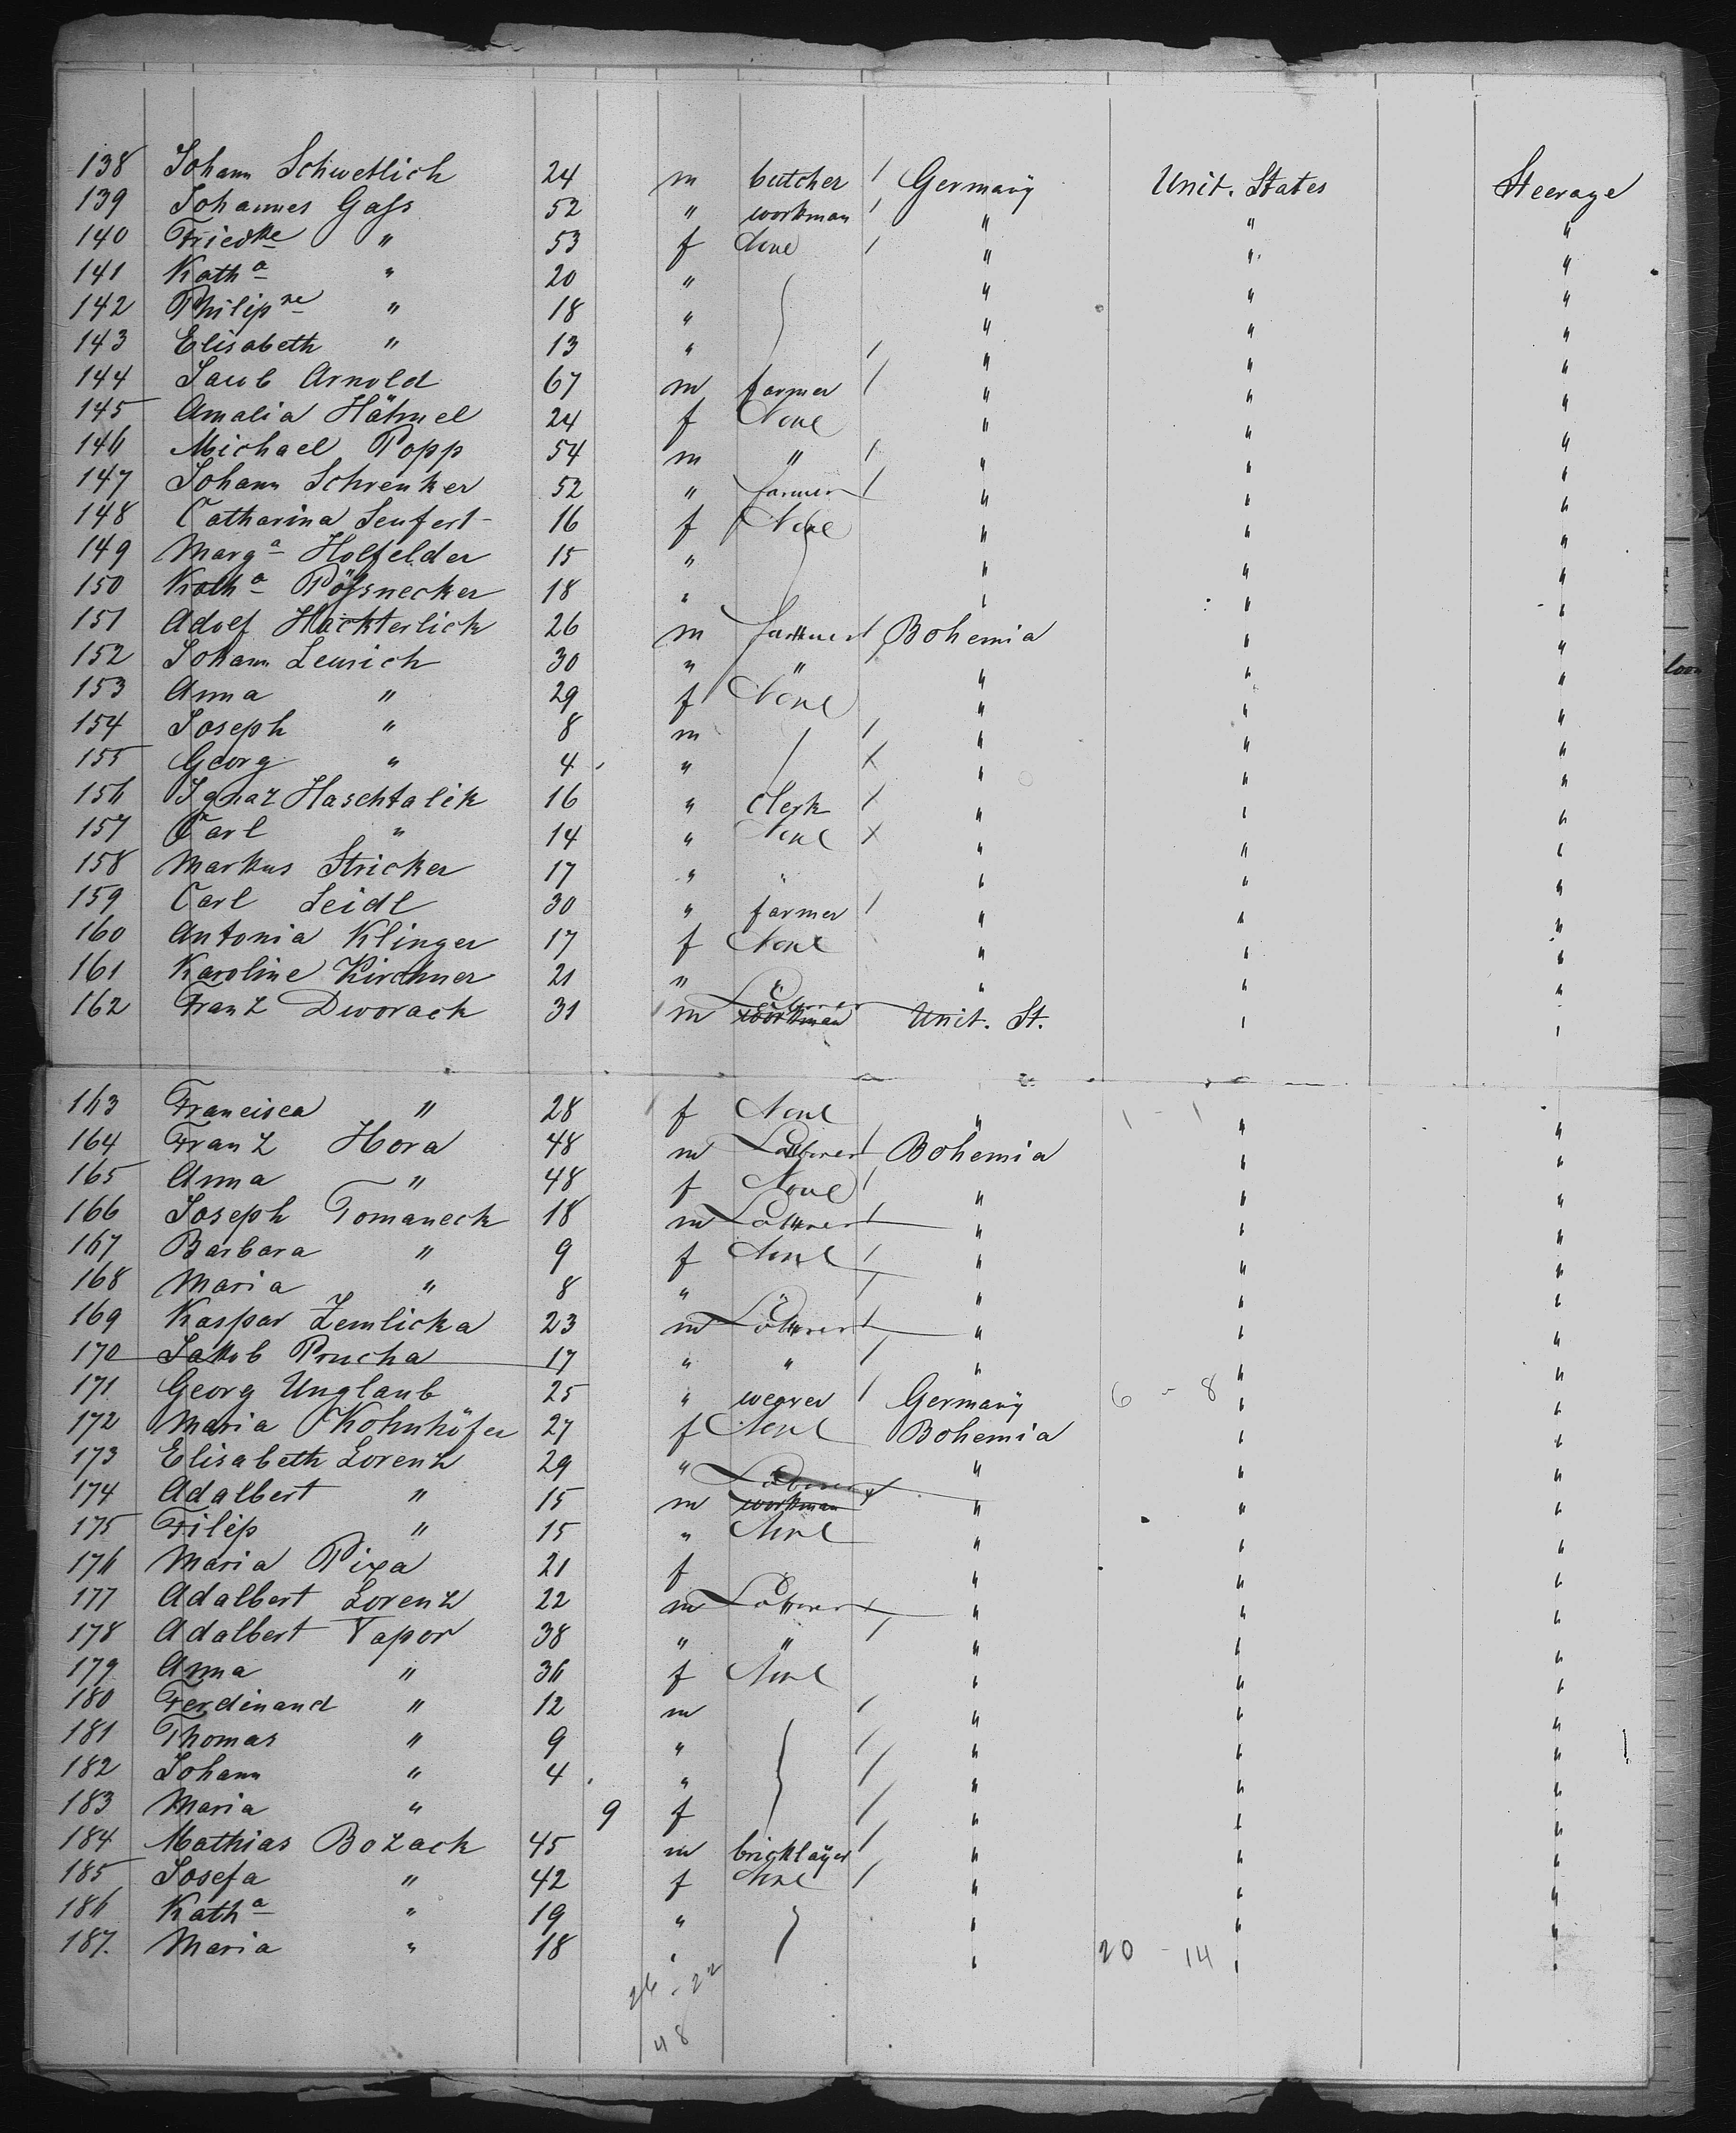 138 Johann Schwetlich 24 m butcher / Germany Unit. States Steerage
139 Johannes Gass 52 " workman / " " "
140 Friedke " 53 f None / " " "
141 Katha " 20 " " " "
142 Philipne " 18 " " " "
143 Elisabeth " 13 " / " " "
144 Jacob Arnold 67 m farmer / " " "
145 Amalia Hähnel 24 f None " " "
146 Michael Popp 54 m " / " " "
147 Johann Schrenker 52 " farmer / " " "
148 Catharina Seufert 16 f None " " "
149 Marga Holfelder 15 " " " "
150 Katha Pößnecker 18 " " " "
151 Adolf Hackterlick 26 m farmer / Bohemia " "
152 Johann Leurich 30 " " " " "
153 Anna " 29 f None " " "
154 Joseph " 8 m / " " "
155 Georg " 4 " X " " "
156 Ignaz Haschtalik 16 " Clerk X " " "
157 Carl " 14 " None X " " "
158 Markus Stricker 17 " " " " "
159 Carl Seidl 30 " farmer / " " "
160 Antonia Klinger 17 f None " " "
161 Karoline Kirchner 21 " " " " "
162 Franz Dworack 31 m workman Laborer Unit. St. " "
163 Francisca " 28 f None " " "
164 Franz Hora 48 m Laborer / Bohemia " "
165 Anna " 48 f None / " " "
166 Joseph Tomaneck 18 m Laborer / " " "
167 Barbara " 9 f None / " " "
168 Maria " 8 " " / " " "
169 Kaspar Zemlicka 23 m Laborer / " " "
170 Jakob Prucha 17 " " / " " "
171 Georg Unglaub 25 " weaver / Germany 6 - 8 " "
172 Maria Kohnhöfer 27 f None Bohemia " "
173 Elisabeth Lorenz 29 " " " " "
174 Adalbert " 15 m workman Laborer " " "
175 Filip " 15 " None " " "
176 Maria Pixa 21 f " " "
177 Adalbert Lorenz 22 m Laborer / " " "
178 Adalbert Tapor 38 " " / " " "
179 Anna " 36 f None " " "
180 Ferdinand " 12 m / " " "
181 Thomas " 9 " / " " "
182 Johann " 4 " / " " "
183 Maria " 9 f / " " "
184 Mathias Bozack 45 m bricklayer / " " "
185 Josefa " 42 f None / " " "
186 Katha " 19 " " " "
187. Maria " 18 " " 20 - 14 " "
26 - 22
48